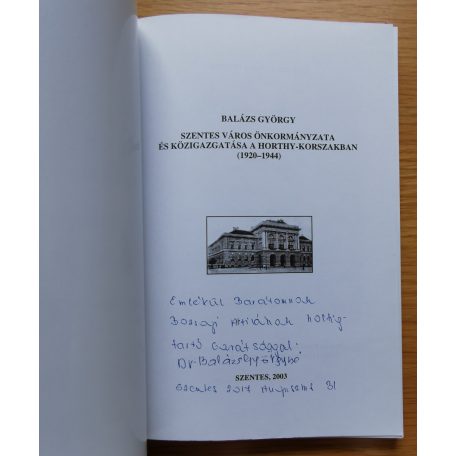 BALÁZS GYÖRGY
SZENTES VÁROS ÖNKORMÁNYZATA
ÉS KÖZIGAZGATÁSA A HORTHY-KORSZAKBAN
(1920–1944)
Emlékül Barátomnak
Attilának holtig-
tartó barátsággal:
Dr Balázs Györgyné
SZENTES, 2003
Szentes 2017 Augusztus 31